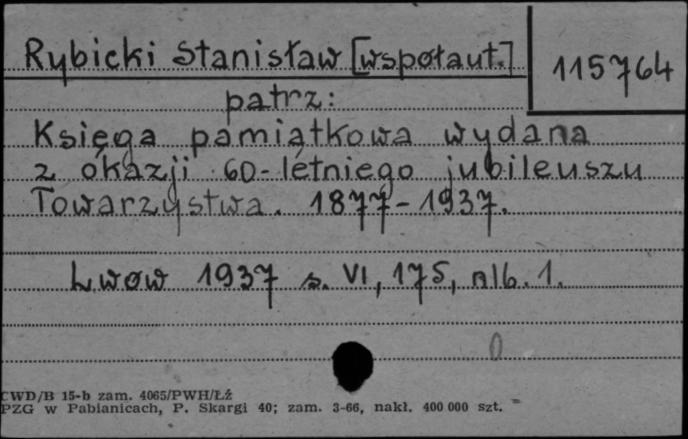 Rybicki Stanisław [wspołaut.]
115764
patrz:
Księga pamiątkowa wydana
z okazji 60-letniego jubileuszu
Towarzystwa. 1877-1937.
Lwow 1937 s. VI, 175, nlb. 1.
0
CWD/B 15-b zam. 4065/PWH/Łź
PZG w Pabianicach, P. Skargi 40; zam. 3-66, nakł. 400 000 szt.